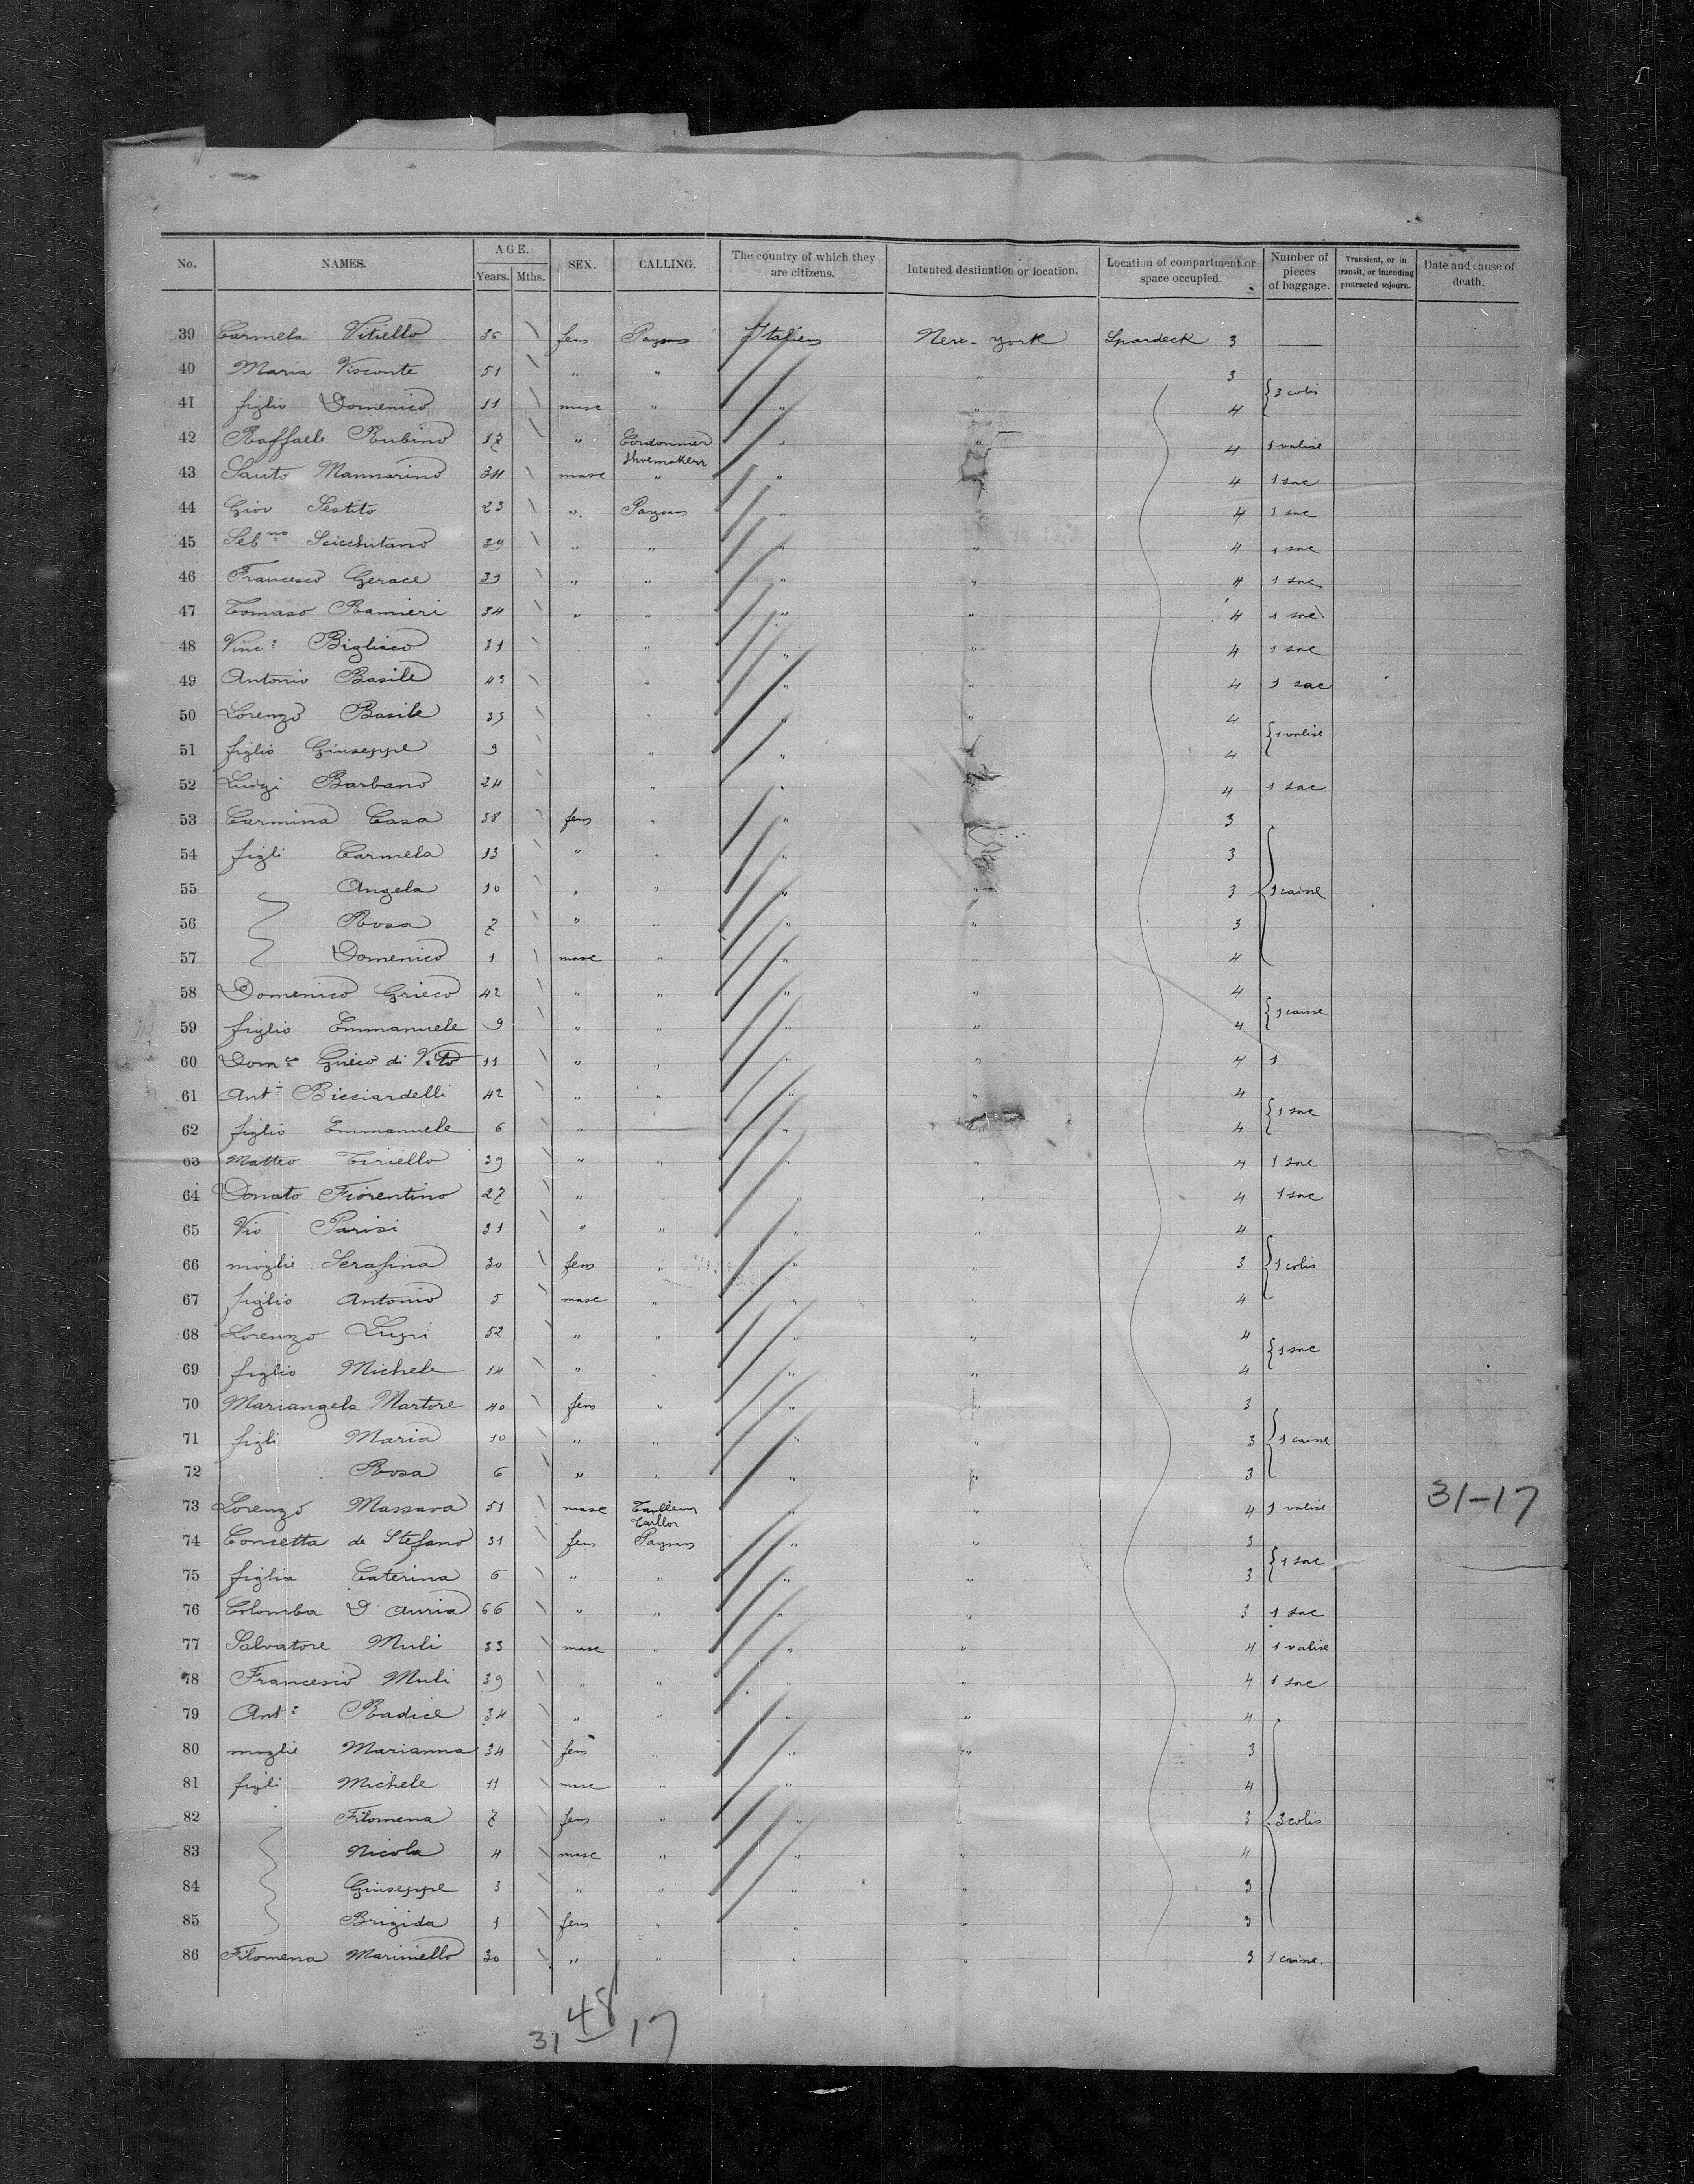 No. NAMES. AGE. Years. Mths. SEX. CALLING. The country of which they are citizens. Intented destination or location. Location of compartment or space occupied. Number of pieces of baggage. Transient, or in transit, or intending protracted sojourn. Date and cause of death.
39 Carmela Vitiello 36 fem Paysan Italien New-York Spardeck 3 —
40 Maria Visconte 51 " " " 3
41 figlio Domenico 11 masc " " " 4 { 3 colis
42 Raffaele Rubino 17 " Cordonnier Shoemaker " " 4 1 valise
43 Santo Mannarino 34 masc " " " 4 1 sac
44 Giov Sestito 23 " Paysan " " 4 1 sac
45 Seb.no Scicchitano 39 " " " " 4 1 sac
46 Francesco Gerace 39 " " " " 4 1 sac
47 Tomaso Ranieri 34 " " " " 4 1 sac
48 Vinc.o Bigliaco 31 " " " 4 1 sac
49 Antonio Basile 43 " " " 4 1 sac
50 Lorenzo Basile 35 " " " 4
51 figlio Giuseppe 9 " " " 4 { 1 valise
52 Luigi Barbano 24 " " " 4 1 sac
53 Carmina Casa 38 fem " " 3
54 figli Carmela 13 " " " 3
55 Angela 10 " " " " 3 { 1 caisse
56 Rosa 7 " " " " 3
57 Domenico 1 masc " " " 4
58 Domenico Grieco 42 " " " " 4
59 figlio Emmanuele 9 " " " " 4 { 1 caisse
60 Dom.co Grieco di Vito 11 " " " " 4 1
61 Ant.o Ricciardelli 42 " " " " 4
62 figlio Emmanuele 6 " " 4 { 1 sac
63 Matteo Ciriello 39 " " " " 4 1 sac
64 Donato Fiorentino 27 " " " " 4 1 sac
65 Vio Parisi 31 " " " " 4
66 moglie Serafina 30 fem " " 3 { 1 colis
67 figlio Antonio 5 masc " " " 4
68 Lorenzo Lupi 52 " " " " 4
69 figlio Michele 14 " " " " 4 { 1 sac
70 Mariangela Martore 40 fem " " " 3
71 figli Maria 10 " " " " 3 { 1 caisse
72 Rosa 6 " " " " 3
73 Lorenzo Massara 51 masc Tailleur Taillor " " 4 1 valise 31-17
74 Concetta de Stefano 31 fem Paysan " " 3
75 figlia Caterina 6 " " " " 3 { 1 sac
76 Colomba D'Auria 66 " " " " 3 1 sac
77 Salvatore Muli 33 masc " " " 4 1 valise
78 Francesco Muli 39 " " " 4 1 sac
79 Ant.o Radice 34 " " " " 4
80 moglie Marianna 34 fem " " " 3
81 figli Michele 11 masc " " 4
82 Filomena 7 fem " " " 3 { 3 colis
83 Nicola 4 masc " " " 4
84 Giuseppe 3 " " " " 3
85 Brigida 1 fem " " " 3
86 Filomena Mariniello 30 " " " " 3 1 caisse.
48
31 17